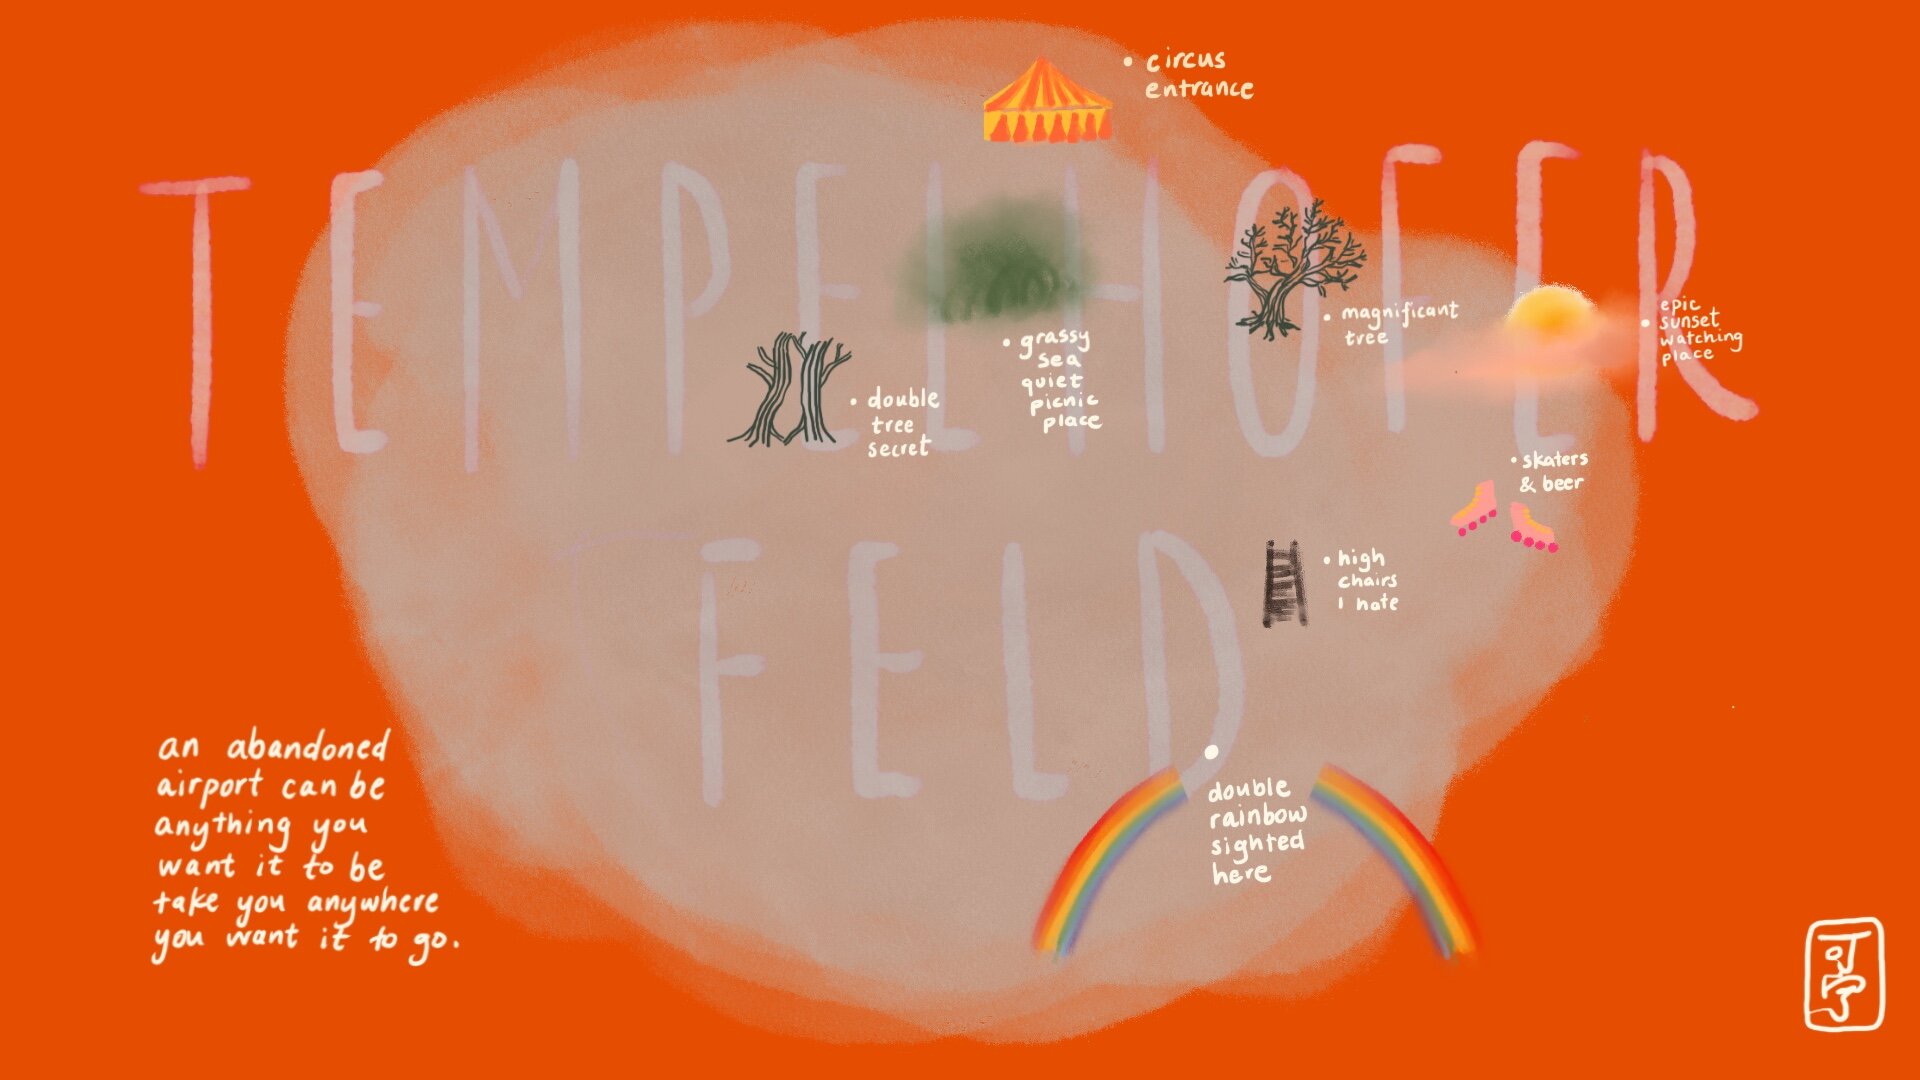 TEMPELHOFER
FELD
circus
entrance
magnificant
tree
epic
sunset
watching
place
grassy
sea
quiet
picnic
place
double
tree
secret
skaters
& beer
high
chairs
I hate
double
rainbow
sighted
here
an abandoned
airport can be
anything you
want it to be
take you anywhere
you want it to go.